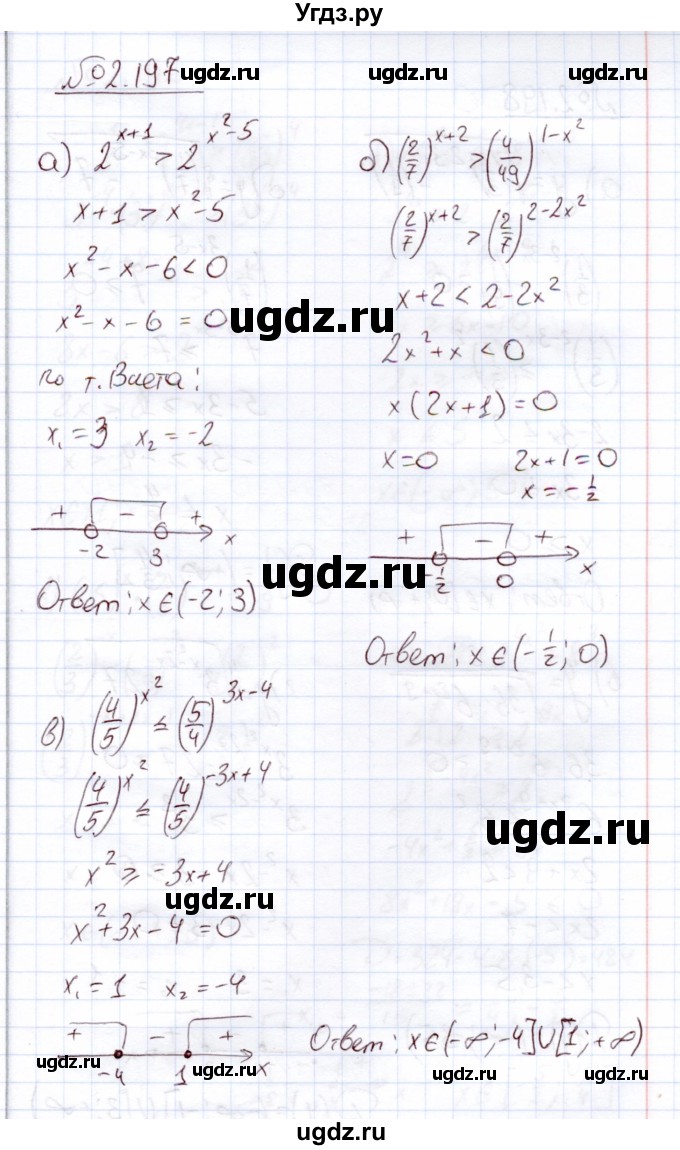 Угдз.ру
№2.197
ugdz.ru
ugdz.ru
ugdz.ru
а) 2^(x+1) > 2^(x²-5)
x+1 > x²-5
x²-x-6<0
x²-x-6=0
ugdz.ru
по т. Виета:
x₁=3 x₂=-2
+ - +
-2 3 x
Ответ: x∈(-2; 3)
б) (2/7)^(x+2) > (4/49)^(1-x²)
(2/7)^(x+2) > (2/7)^(2-2x²)
x+2 < 2-2x²
2x²+x <0
x(2x+1)=0
x=0 2x+1=0
x=-1/2
+ - +
-1/2 0 x
ugdz.ru
Ответ: x∈(-1/2; 0)
в) (4/5)^(x²) ≤ (5/4)^(3x-4)
(4/5)^(x²) ≤ (4/5)^(-3x+4)
ugdz.ru
x² ≥ -3x+4
ugdz.ru
x²+3x-4=0
x₁=1 x₂=-4
+ - +
-4 1 x
Ответ: x∈(-∞;-4]∪[1;+∞)
ugdz.ru
ugdz.ru
ugdz.ru
ugdz.ru